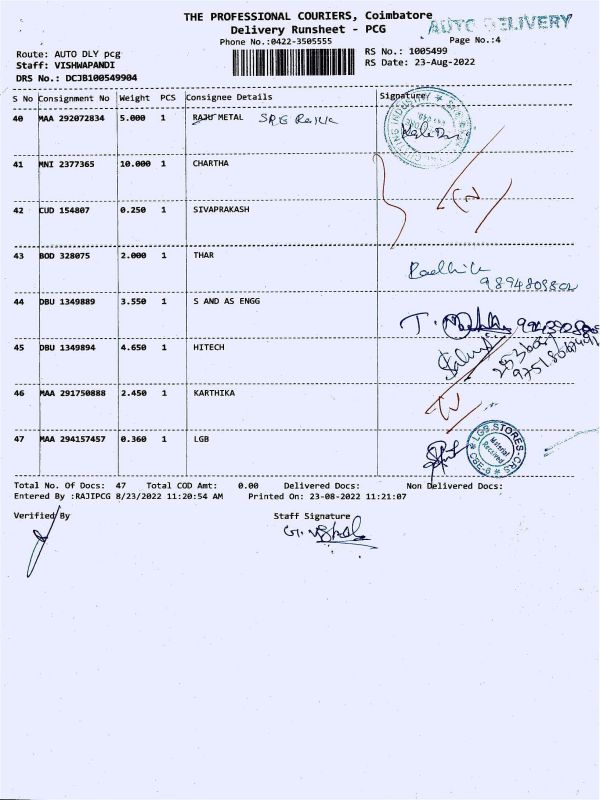 THE PROFESSIONAL COURIERS, Coimbatore
AUTO DELIVERY
Delivery Runsheet - PCG
Phone No.:0422-3505555
Page No.:4
Route: AUTO DLY pcg
RS No.: 1005499
Staff: VISHWAPANDI
RS Date: 23-Aug-2022
DRS No.: DCJB100549904
S No Consignment No Weight PCS Consignee Details Signature
40 MAA 292072834 5.000 1 RAJU METAL
41 MNI 2377365 10.000 1 CHARTHA
42 CUD 154807 0.250 1 SIVAPRAKASH
43 BOD 328075 2.000 1 THAR
Radhika
9894809802
44 DBU 1349889 3.550 1 S AND AS ENGG
45 DBU 1349894 4.650 1 HITECH
46 MAA 291750888 2.450 1 KARTHIKA
47 MAA 294157457 0.360 1 LGB
LGS STORES-CRS
Material
Received
CBE-6
Total No. Of Docs: 47 Total COD Amt: 0.00 Delivered Docs: Non Delivered Docs:
Entered By :RAJIPCG 8/23/2022 11:20:54 AM Printed On: 23-08-2022 11:21:07
Verified By Staff Signature